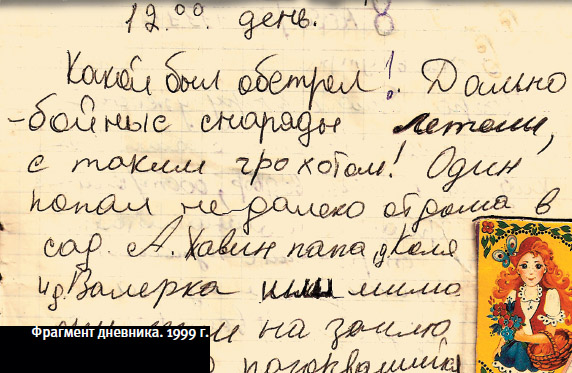 12.⁰⁰. день.
Какой был обстрел! Дально
-бойные снаряды летели,
с таким грохотом! Один
попал недалеко от дома в
сад. А. Хавин папа, д Коля
и д Валерка шли мимо
на землю
Фрагмент дневника. 1999 г.